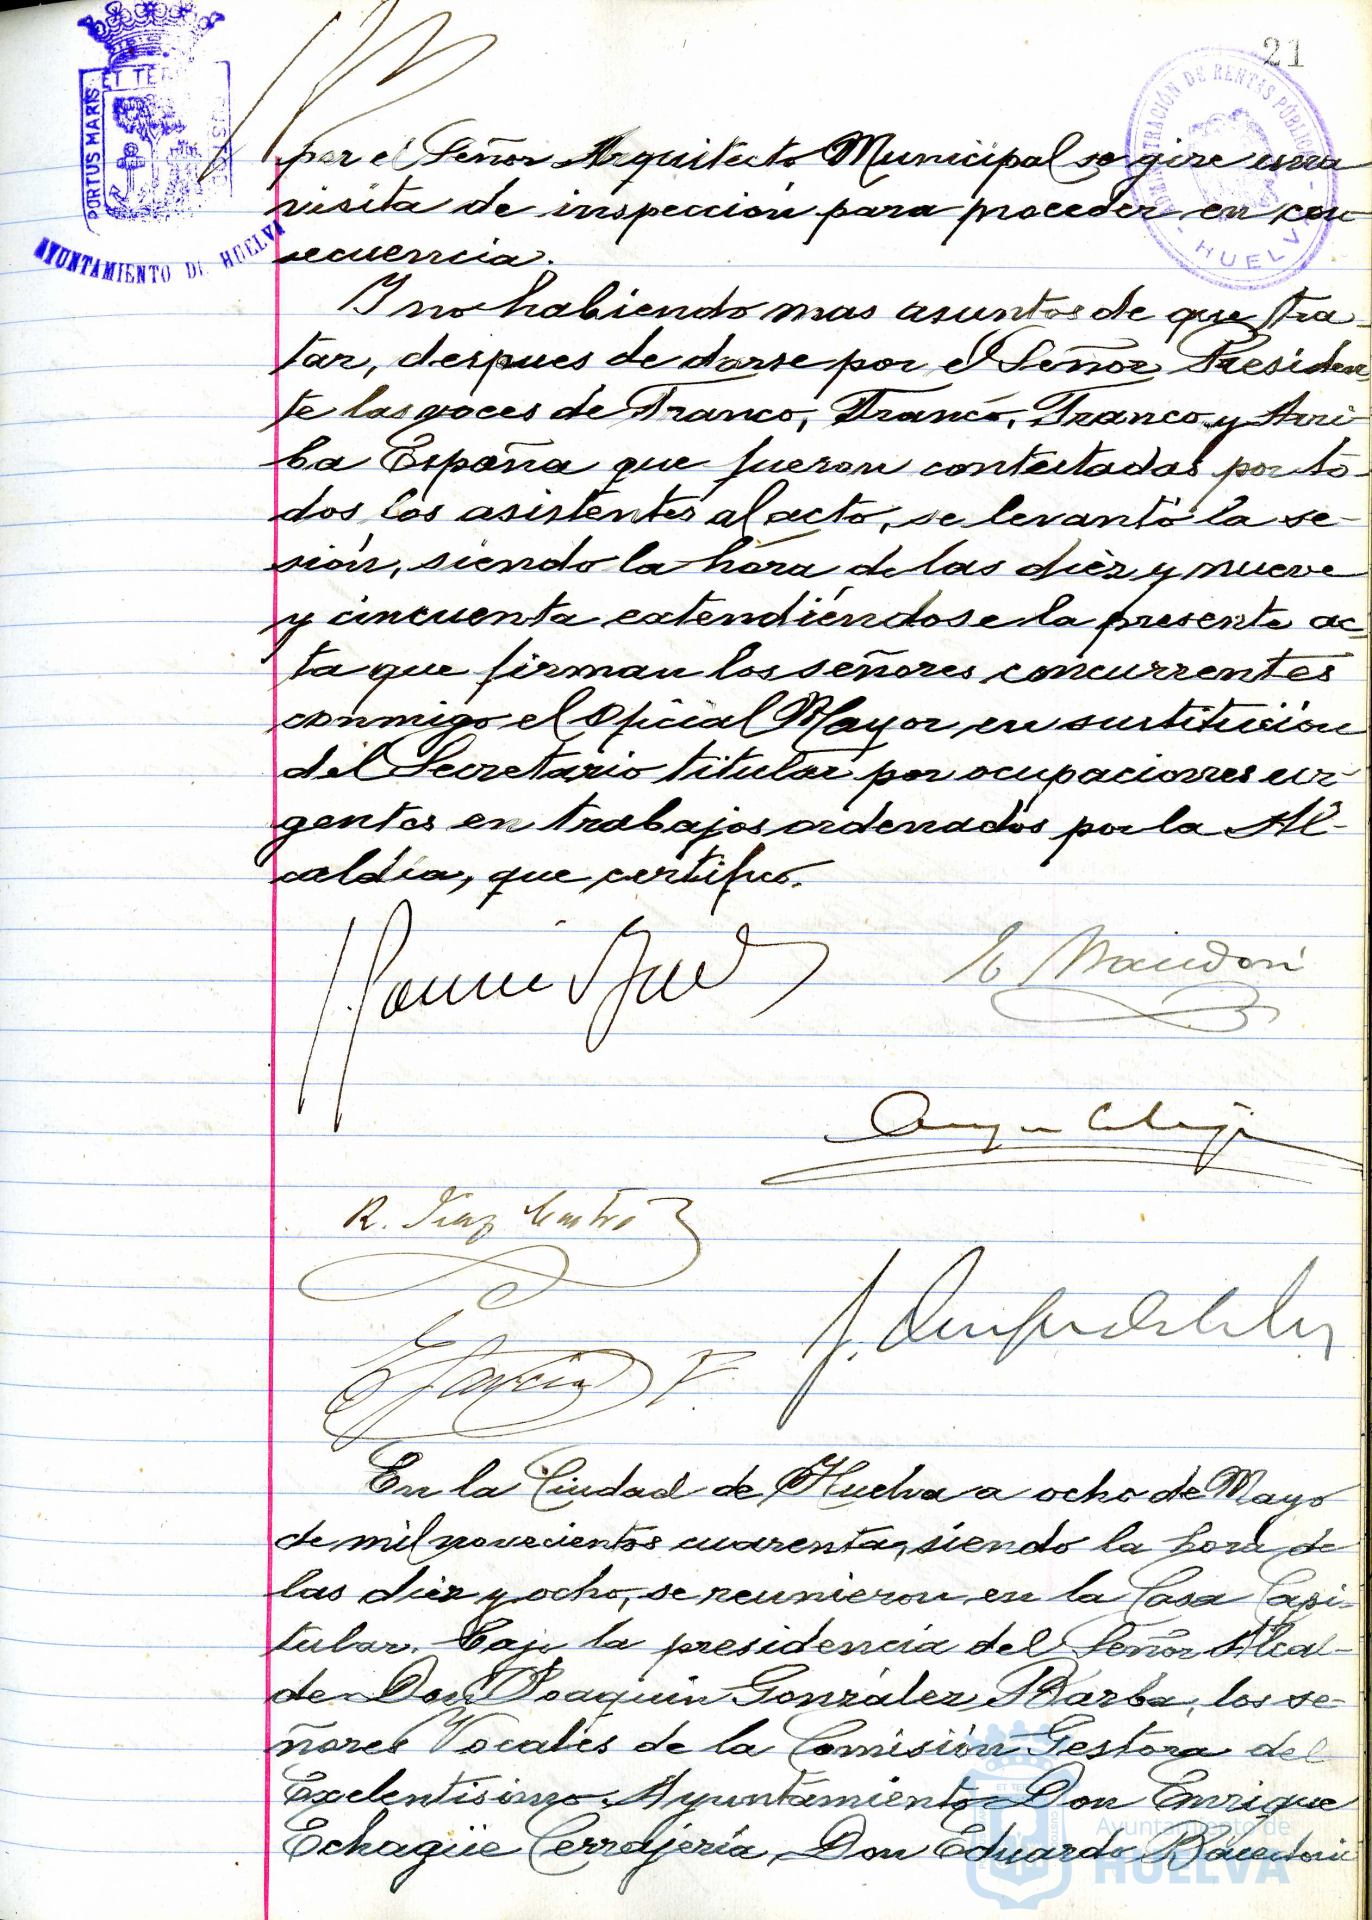 21
PORTUS MARIS ET TER
AYUNTAMIENTO DE HUELVA
ADMINISTRACIÓN DE RENTAS PÚBLICAS
- HUELVA -
por el Señor Arquitecto Municipal se gire una
visita de inspección para proceder en con
secuencia.
Y no habiendo mas asuntos de que tra-
tar, despues de darse por el Señor Presiden
te las voces de Franco, Franco, Franco y Arri-
ba España que fueron contestadas por to-
dos los asistentes al acto, se levantó la se-
sión, siendo la hora de las diez y nueve
y cincuenta extendiéndose la presente ac-
ta que firman los señores concurrentes
conmigo el Oficial Mayor en sustitución
del Secretario titular por ocupaciones ur-
gentes en trabajos ordenados por la Al-
caldía, que certifico.
R. Díaz Castro
García
En la Ciudad de Huelva a ocho de Mayo
de mil novecientos cuarenta, siendo la hora de
las diez y ocho, se reunieron en la Casa Capi-
tular. bajo la presidencia del Señor Alcal-
de Don Joaquin González Barba, los se-
ñores Vocales de la Comisión Gestora del
Exelentisimo Ayuntamiento Don Enrique
Echagüe Cerrajería, Don Eduardo
Ayuntamiento de
HUELVA